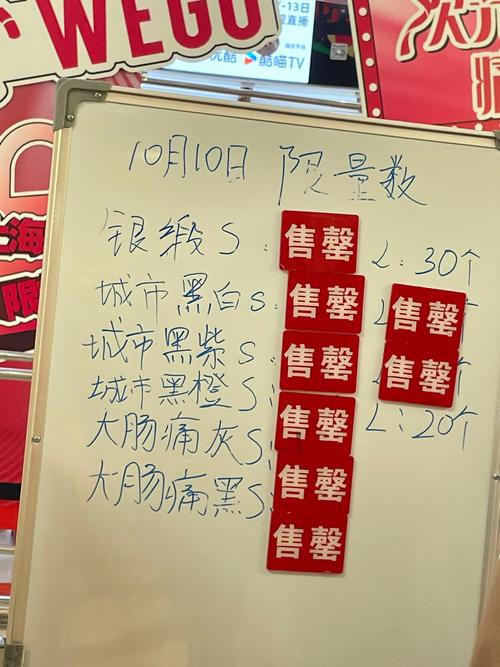 WEGO
-13日
直播
优酷 酷喵TV
次元
10月10日 限量数
银缎S: 售罄 L: 30个
城市黑白S: 售罄 L 售罄
城市黑紫S: 售罄 售罄
城市黑橙S: 售罄 L: 20个
大肠痛灰S: 售罄
大肠痛黑S: 售罄
上海
限